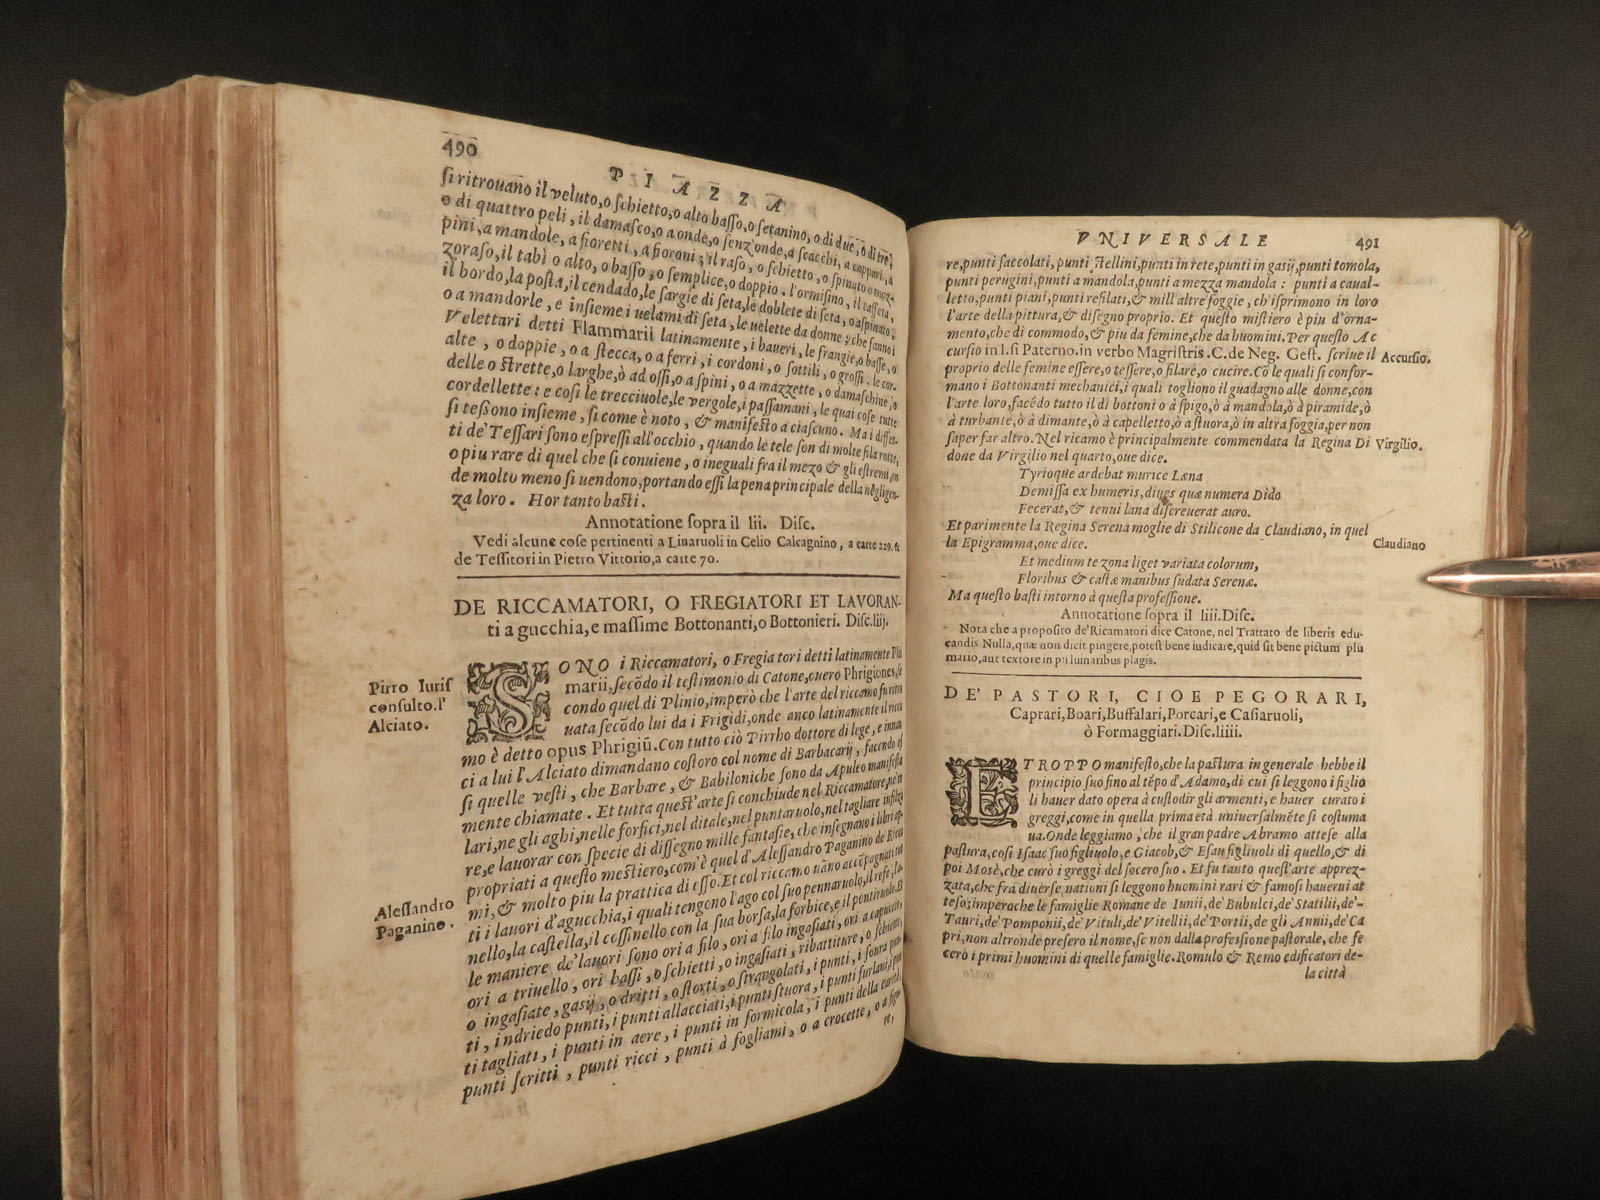 490
PIAZZA
si ritrouano il veluto, o schietto, o alto basso, o setanino, o di due, o di tre,
o di quattro peli, il damasco, o a onde, o senz'onde, a scacchi, a cappari, a
pini, a mandole, a fioretti, a fioroni; il raso, o schietto, o spinato o
zoraso, il tabì o alto, o basso, o semplice, o doppio. l'ormisino, il taffeta,
il bordo, la posta, il cendado, le sargie di seta, le doblete di seta, o a spinato,
o a mandorle, e insieme i uelami di seta, le uelette da donne; che fanno i
Velettari detti Flammarii latinamente, i baueri, le frangie, o basse, o
alte, o doppie, o a stecca, o a ferri, i cordoni, o sottili, o grossi. le cor-
delle o strette, o larghe, ò ad ossi, o a spini, o a mazzette, o damaschine, o
cordellette: e cosi le trecciuole, le vergole, i passamani, le quai cose tutte
si tessono insieme, si come è noto, & manifesto a ciascuno. Ma i diffet-
ti de' Tessari sono espressi all'occhio, quando le tele son di molte fila rotte,
o piu rare di quel che si conuiene, o ineguali fra il mezo & gli estremi, on
de molto meno si uendono, portando essi la pena principale della negligen-
za loro. Hor tanto basti.
Annotatione sopra il lii. Disc.
Vedi alcune cose pertinenti a Linaruoli in Celio Calcagnino, a carte 229. &
de Tessitori in Pietro Vittorio, a carte 70.
DE RICCAMATORI, O FREGIATORI ET LAVORAN-
ti a gucchia, e massime Bottonanti, o Bottonieri. Disc. liij.
Pirro Iuris
consulto. l'
Alciato.
SONO i Riccamatori, o Fregiatori detti latinamente Plu
marii, secõdo il testimonio di Catone, ouero Phrigiones, se
condo quel di Plinio, imperò che l'arte del riccamo fu ritro
uata secõdo lui da i Frigidi, onde anco latinamente il ricca
mo è detto opus Phrigiũ. Con tutto ciò Pirrho dottore di lege, e innan
ci a lui l'Alciato dimandano costoro col nome di Barbacarij, facendo es
si quelle vesti, che Barbare, & Babiloniche sono da Apuleo manifesta
mente chiamate. Et tutta quest'arte si conchiude nel Riccamatore, ne te
lari, ne gli aghi, nelle forfici, nel ditale, nel puntaruolo, nel tagliare infilza
re, e lauorar con specie di dissegno mille fantasie, che insegnano i libri ap-
propriati a questo mestiero, com'è quel d'Alessandro Paganino de Ricca
mi, & molto piu la prattica di esso. Et col riccamo uãno accõpagnati tut
Alessandro
Paganino.
ti i lauori d'agucchia, i quali tengono l'ago col suo pennaruolo, il refe, l'a
nello, la castella, il cossinello con la sua borsa, la forbice, e il pontiruolo. Et
le maniere de' lauori sono ori a filo, ori a filo ingasiati, ori a capuccio,
ori a triuello, ori bassi, o schietti, o ingasiati, ribattiture, o schiette,
o ingasiate, gasij, o dritti, o storti, o strangolati, i punti, i soura pun
ti, indriedo punti, i punti allacciati, i punti stuora, i punti furlani, i pun
ti tagliati, i punti in aere, i punti in formicola, i punti della
punti scritti, punti ricci, punti à fogliami, o a crocette, o a figu
re,
VNIVERSALE 491
re, punti saccolati, punti stellini, punti in rete, punti in gasij, punti tomola,
punti perugini, punti a mandola, punti a mezza mandola: punti a caual-
letto, punti piani, punti refilati, & mill'altre foggie, ch'isprimono in loro
l'arte della pittura, & disegno proprio. Et questo mistiero è piu d'orna-
mento, che di commodo, & piu da femine, che da huomini. Per questo Ac
cursio in l. si Paterno. in verbo Magistris. C. de Neg. Gest. scriue il
Accursio.
proprio delle femine essere, o tessere, o filare, o cucire. Cõ le quali si confor-
mano i Bottonanti mechanici, i quali togliono il guadagno alle donne, con
l'arte loro, facẽdo tutto il dì bottoni o à spigo, ò à mandola, ò à piramide, ò
à turbante, ò à dimante, ò à capelletto, o astuora, ò in altra foggia, per non
saper far altro. Nel ricamo è principalmente commendata la Regina Di
Virgilio.
done da Virgilio nel quarto, oue dice.
Tyrioque ardebat murice Læna
Demissa ex humeris, diues quæ numera Dido
Fecerat, & tenui lana discreuerat auro.
Et parimente la Regina Serena moglie di Stilicone da Claudiano, in quel
la Epigramma, oue dice.
Claudiano
Et medium te zona liget variata colorum,
Floribus & castæ manibus sudata Serenæ.
Ma questo basti intorno à questa professione.
Annotatione sopra il liii. Disc.
Nota che a proposito de' Ricamatori dice Catone, nel Trattato de liberis edu-
candis Nulla, quæ non dicit pingere, potest bene iudicare, quid sit bene pictum plu
mario, aut textore in puluinaribus plagis.
DE' PASTORI, CIOE PEGORARI,
Caprari, Boari, Buffalari, Porcari, e Casiaruoli,
ò Formaggiari. Disc. liiii.
E TROPPO manifesto, che la pastura in generale hebbe il
principio suo fino al tẽpo d'Adamo, di cui si leggono i figlio
li hauer dato opera à custodir gli armenti, e hauer curato i
greggi, come in quella prima età uniuersalmẽte si costuma
ua. Onde leggiamo, che il gran padre Abramo attese alla
pastura, così Isaac suo figliuolo, e Giacob, & Esau figliuoli di quello, & di
poi Mosè, che curò i greggi del socero suo. Et fu tanto quest'arte apprez-
zata, che frà diuerse nationi si leggono huomini rari & famosi hauerui at
teso; imperoche le famiglie Romane de Iunii, de' Bubulci, de' Statilii, de'-
Tauri, de' Pomponii, de' Vituli, de' Vitellii, de' Portii, de gli Annii, de' Ca
pri, non altronde presero il nome, se non dalla professione pastorale, che fe
cerò i primi huomini di quelle famiglie. Romulo & Remo edificatori de-
la città